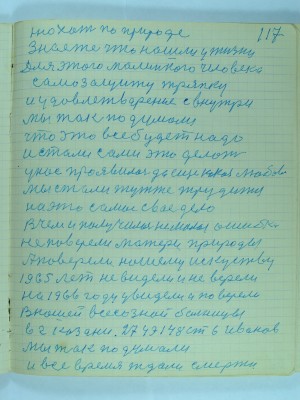 117
нюхат по природе
Знаете что нашли у жизни
Для этого маленкого человека
самозащиту тряпки
и удовлетварение с внутри
мы так подумали
что это все будет надо
и стали сами это делат
у нас проявилас до сих какая любов
Мы стали тут же трудится
на это самое свое дело
В чем получилас немалая ошибка
не поверели матери природы
А поверели нашему искуству
1965 лет не видели и не верели
на 1966 году увидели и поверели
В нашей всесозной болницы
в 2 глаздни. 2749148 ст 6 Иванов
Мы так подумали
и все время ждали смерти